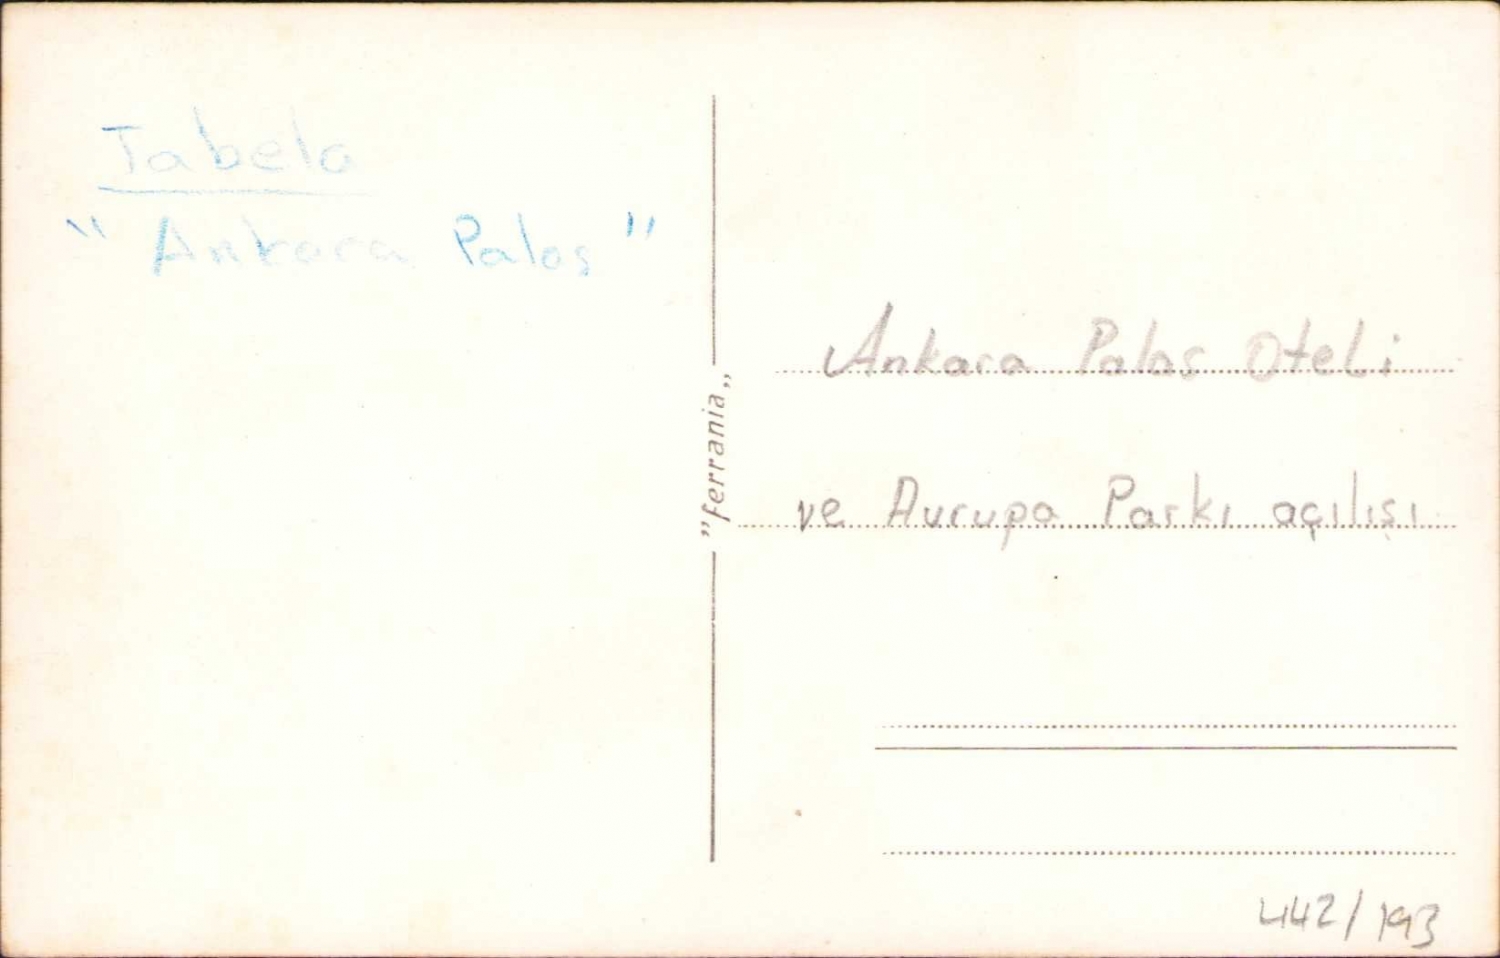 Tabela
" Ankara Palas "
"ferrania„
Ankara Palas Oteli
ve Avrupa Parkı açılışı
442/193